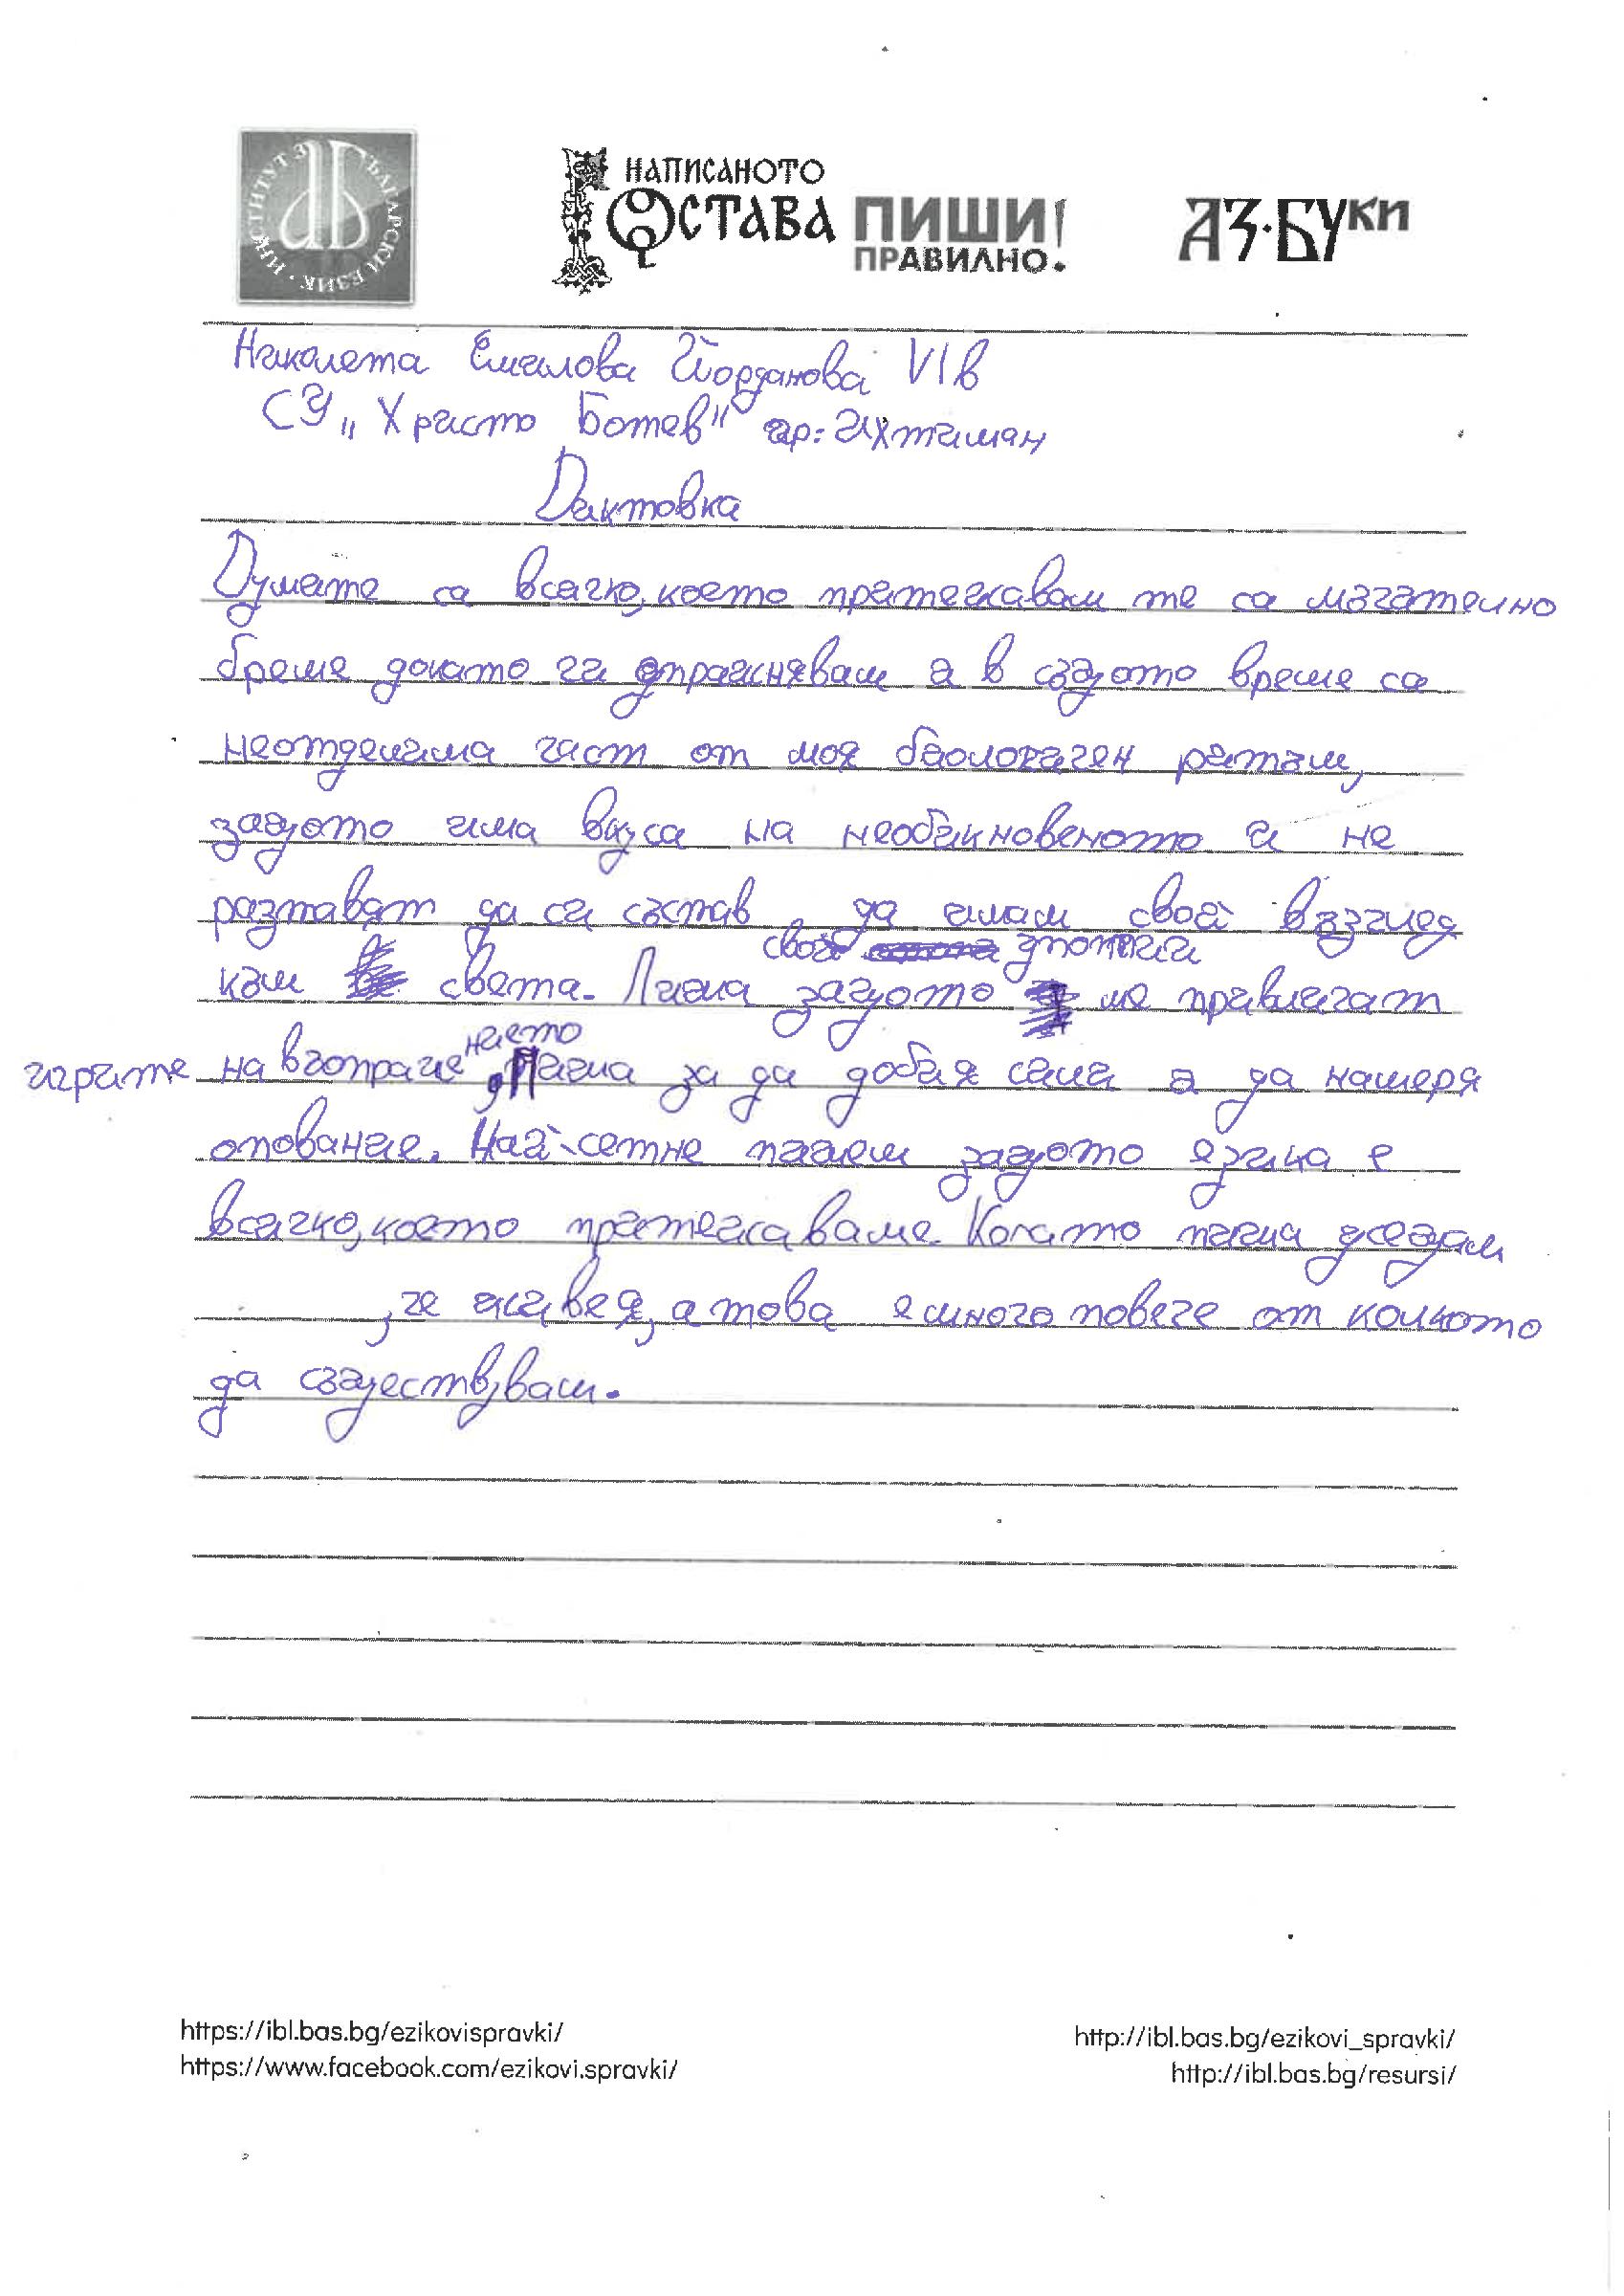 ИНСТИТУТ ЗА БЪЛГАРСКИ ЕЗИК
НАПИСАНОТО
ОСТАВА
ПИШИ!
ПРАВИЛНО.
АЗ·БУКИ
Николета Емилова Йорданова VI в
СУ „Христо Ботев" гр. Ихтиман
Диктовка
Думите са всичко, което притежавам те са мъчително
бреме докато ги упражнявам а в същото време са
неотделима част от моя биологичен ритъм,
защото има вкуса на необикновеното и не
разтавят да си състав, да имам свой възглед
към света. Пиша защото ме привличат
свой
игрите на въображе нието, Пиша за да добия сила а да намеря
опование. Най-сетне пишем защото езика е
всичко, което притежаваме. Когато пиша усещам
, че живея, а това е много повече от колкото
да съществувам.
https://ibl.bas.bg/ezikovispravki/
https://www.facebook.com/ezikovi.spravki/
http://ibl.bas.bg/ezikovi_spravki/
http://ibl.bas.bg/resursi/